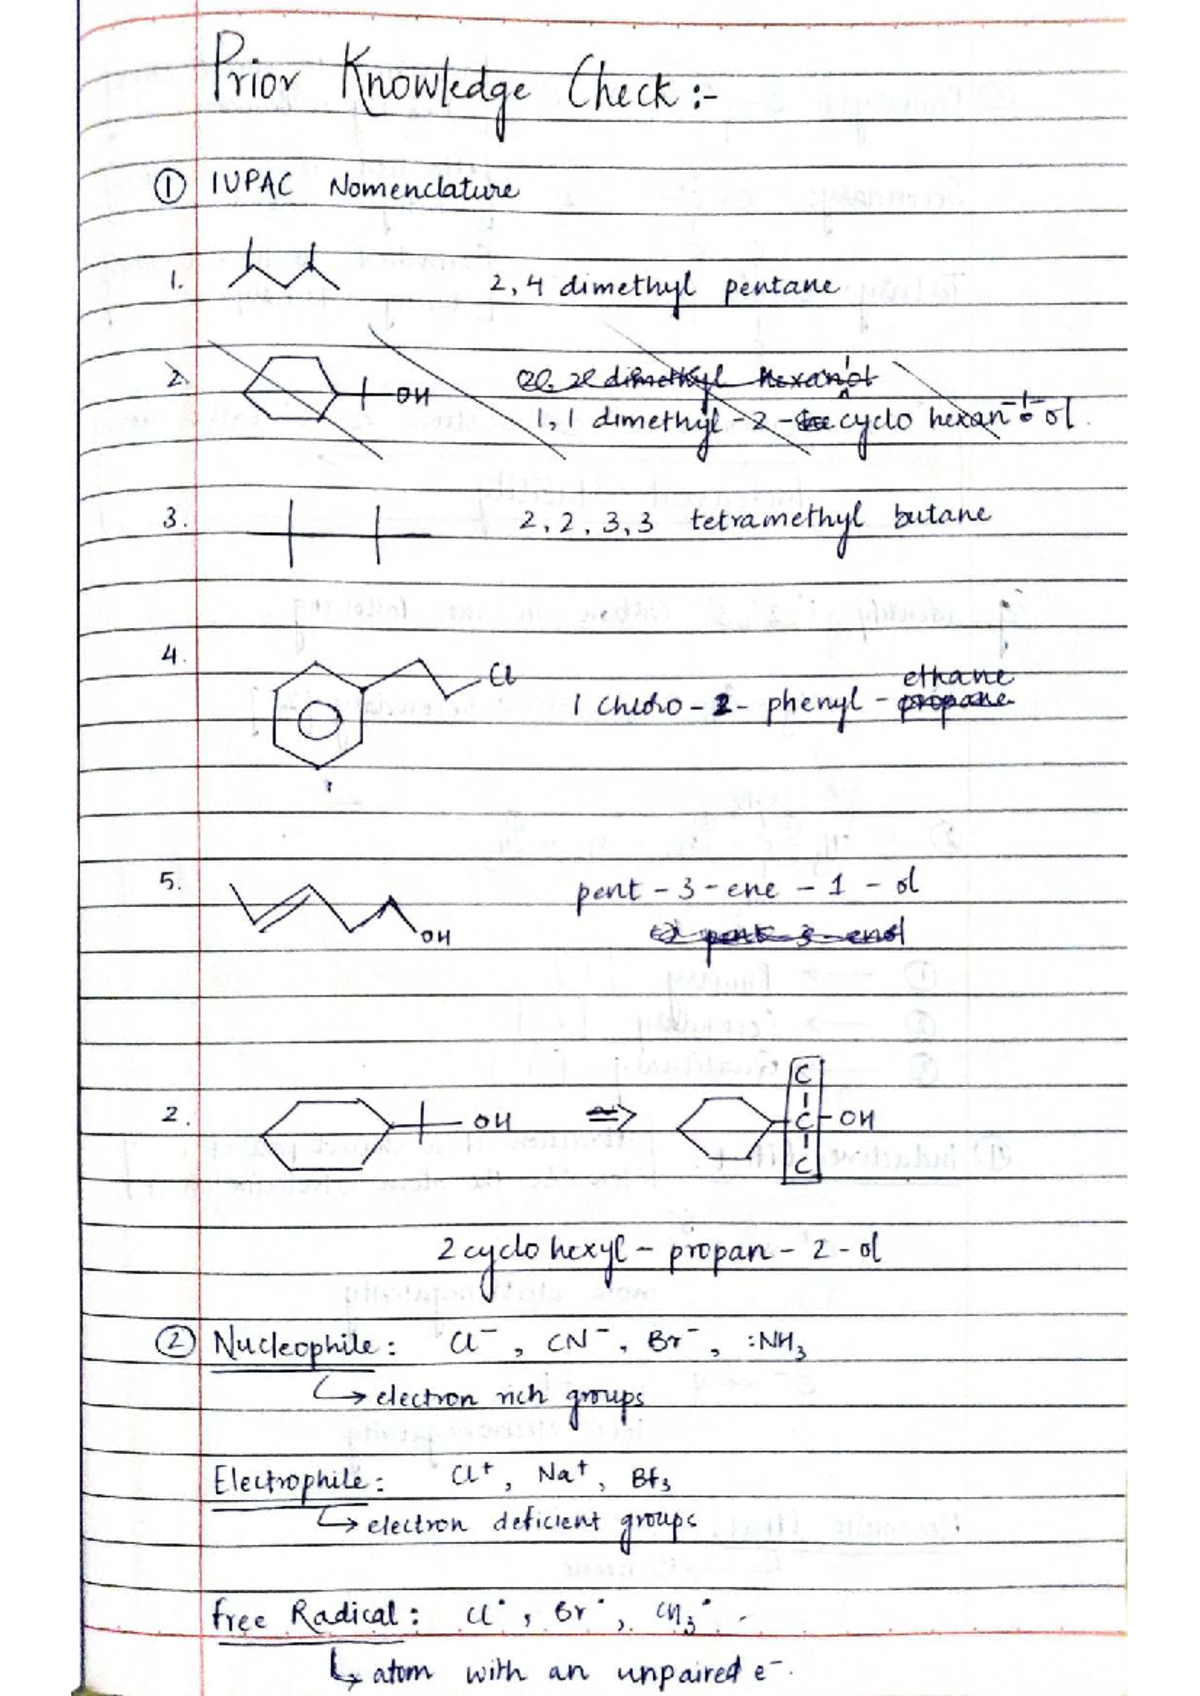 Prior Knowledge Check :-
① IUPAC Nomenclature
1. 2, 4 dimethyl pentane
2. OH 2, 2 dimethyl hexan-1-ol
1, 1 dimethyl - 2 - cyclo hexan - 1 - ol.
3. 2, 2, 3, 3 tetramethyl butane
4. Cl ethane
1 Chloro - 2 - phenyl - propane
5. pent - 3 - ene - 1 - ol
OH pent - 3 - enol
C
2. OH ⇒ C - OH
C
2 cyclo hexyl - propan - 2 - ol
② Nucleophile : Cl⁻, CN⁻, Br⁻, :NH₃
↳ electron rich groups
Electrophile : Cl⁺, Na⁺, Bf₃
↳ electron deficient groups
free Radical : Cl•, Br•, CH₃•
↳ atom with an unpaired e⁻.